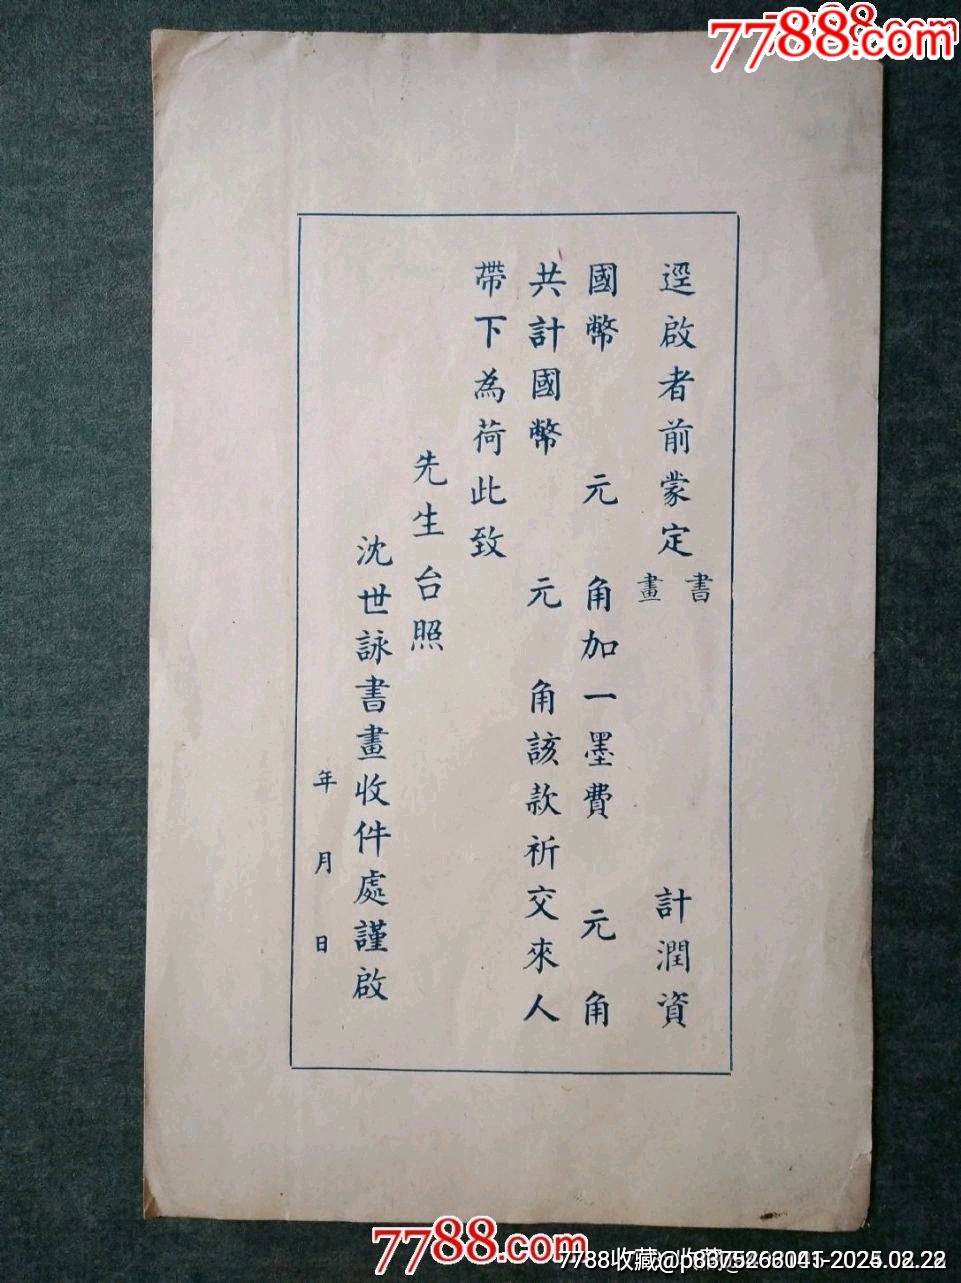 逕啟者前蒙定書畫 計潤資
國幣 元 角加一墨費 元 角
共計國幣 元 角該款祈交來人
帶下為荷此致
先生台照
沈世詠書畫收件處謹啟
年 月 日
7788.com
7788.com
7788收藏